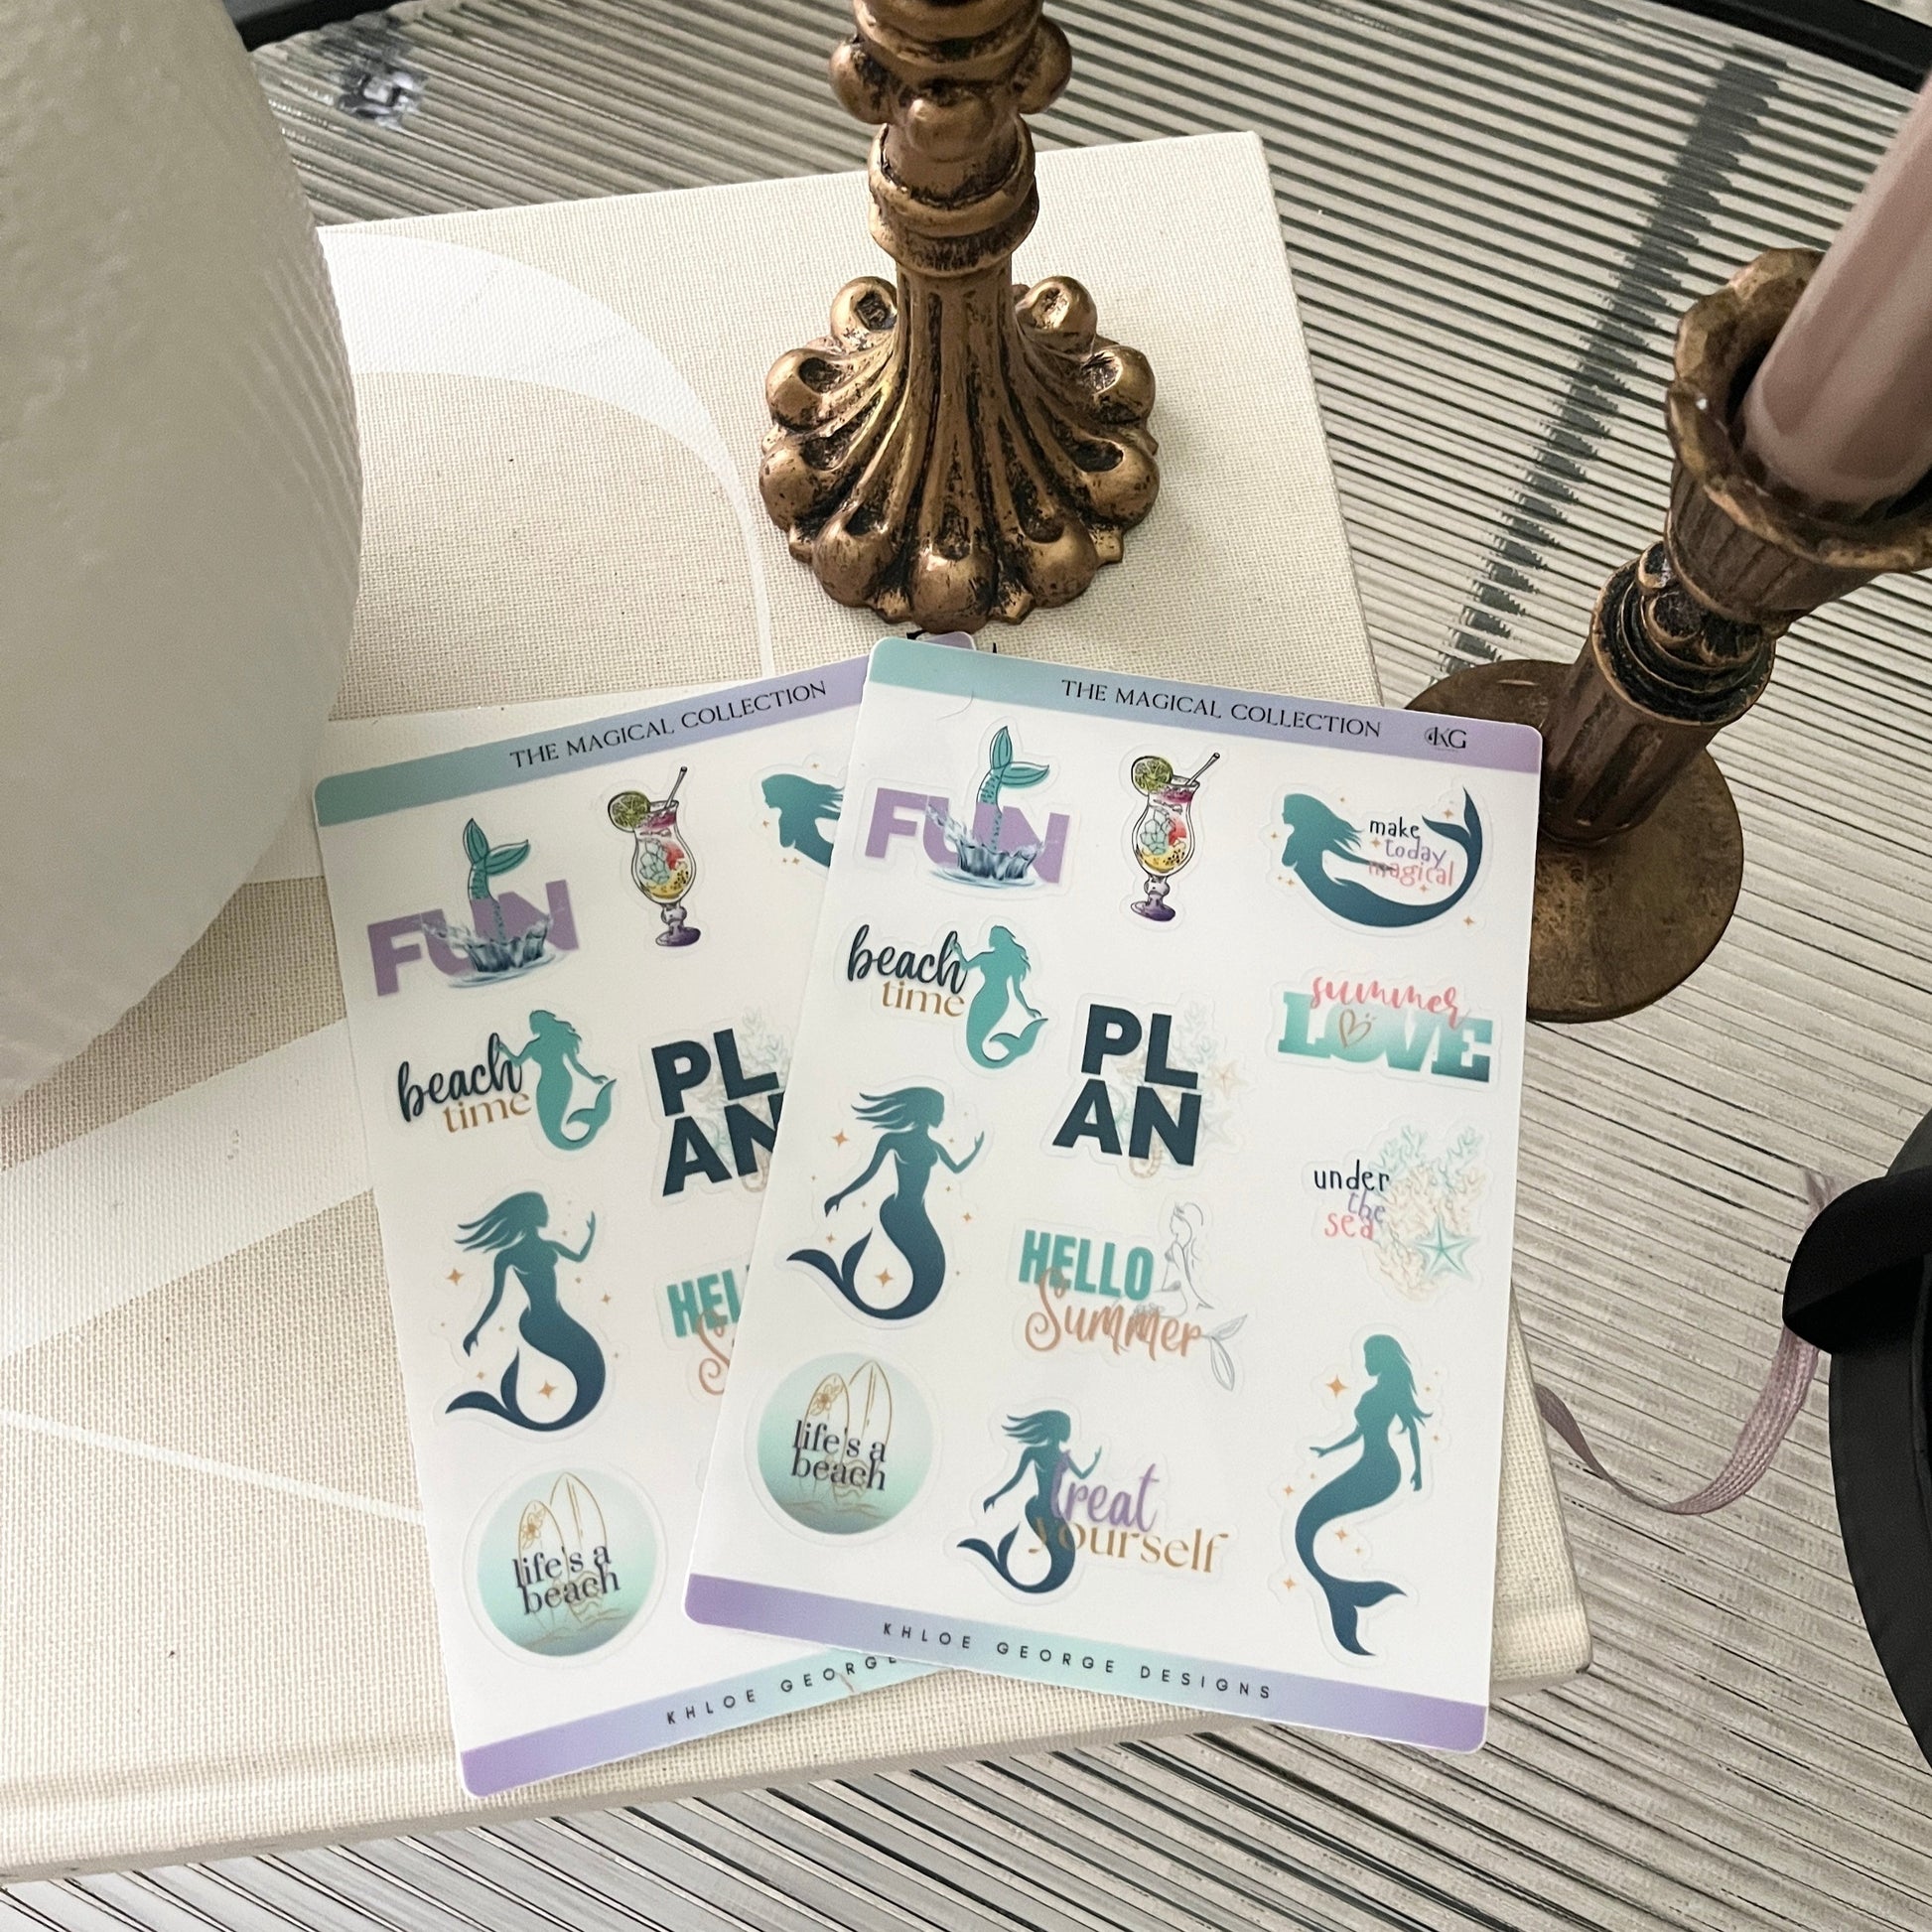 THE MAGICAL COLLECTION
FUN
beach
time
PL
AN
HEL
life's a
beach
KHLOE GEORGE
THE MAGICAL COLLECTION
KG
FUN
make
today
magical
beach
time
PL
AN
summer
LOVE
under
the
sea
HELLO
Summer
life's a
beach
treat
yourself
KHLOE GEORGE DESIGNS